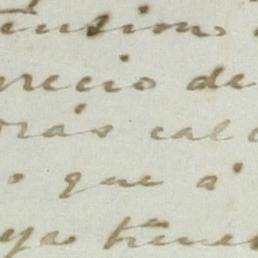 tension
precio de
rás cal
o que a
ya tiene